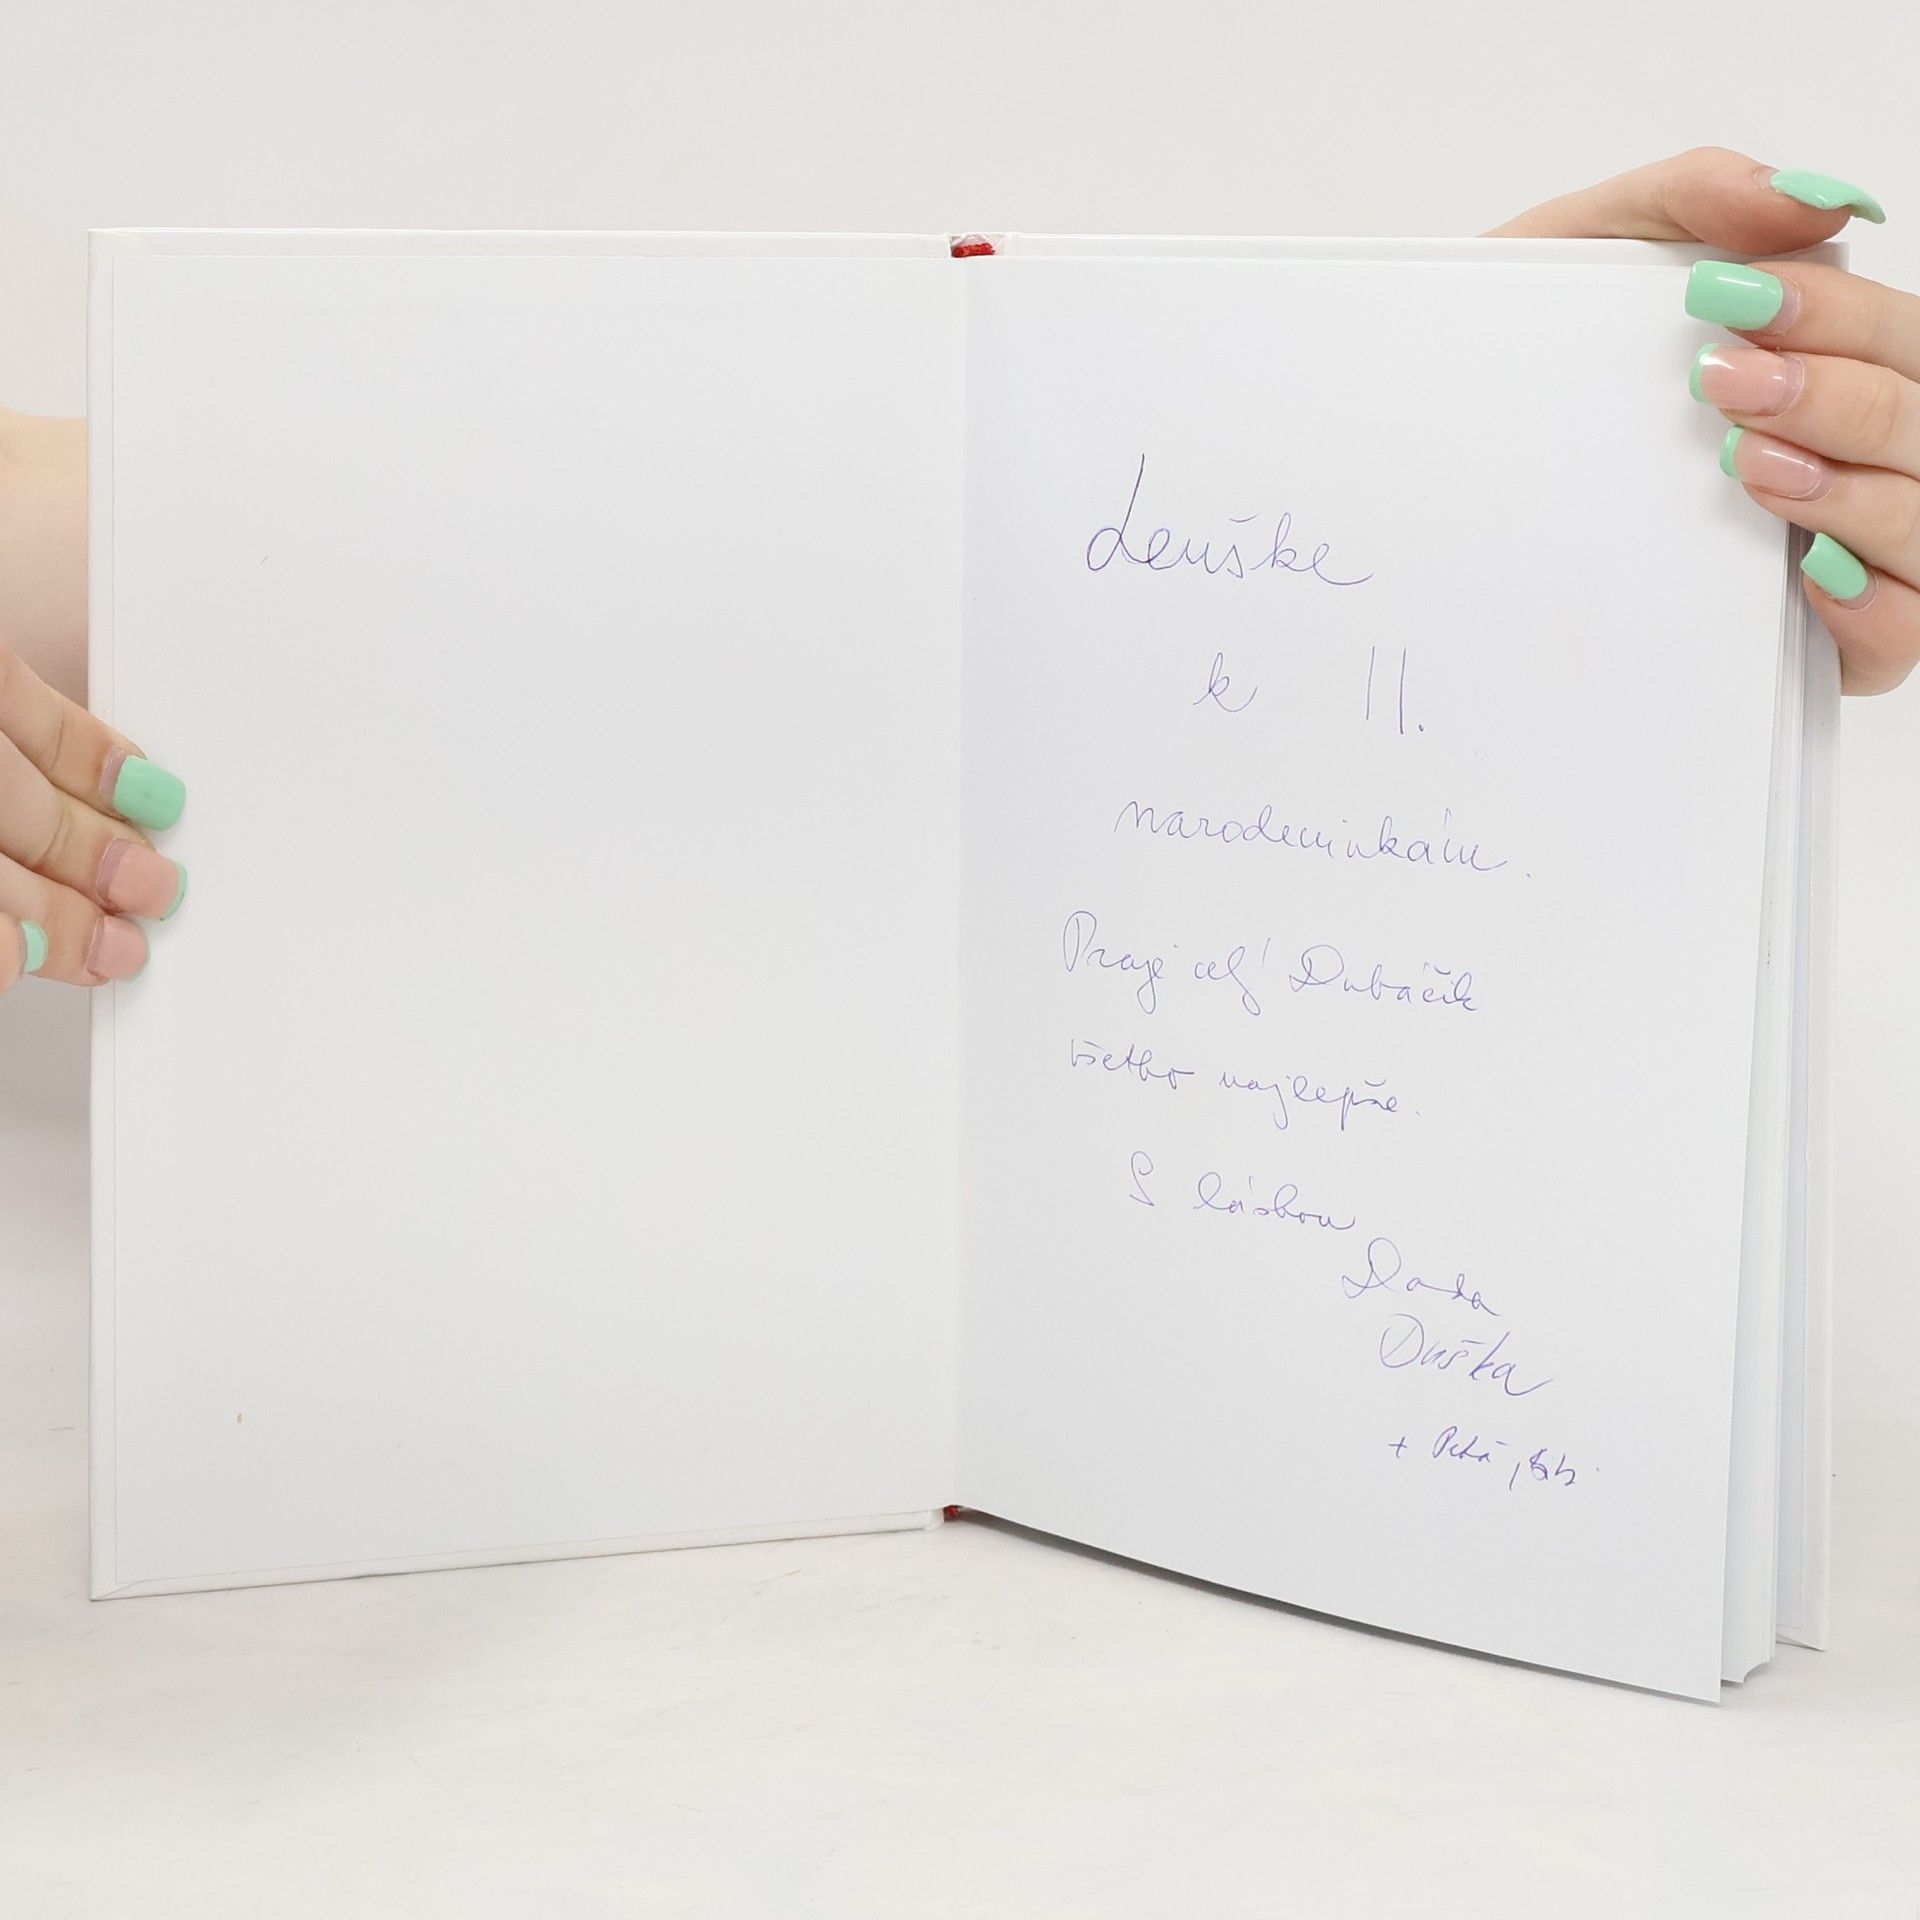 Lenuške
k 11.
narodeninkám.
Praje celý Dubáčik
všetko najlepšie.
S láskou
Dada
Duška
+ Peťa,